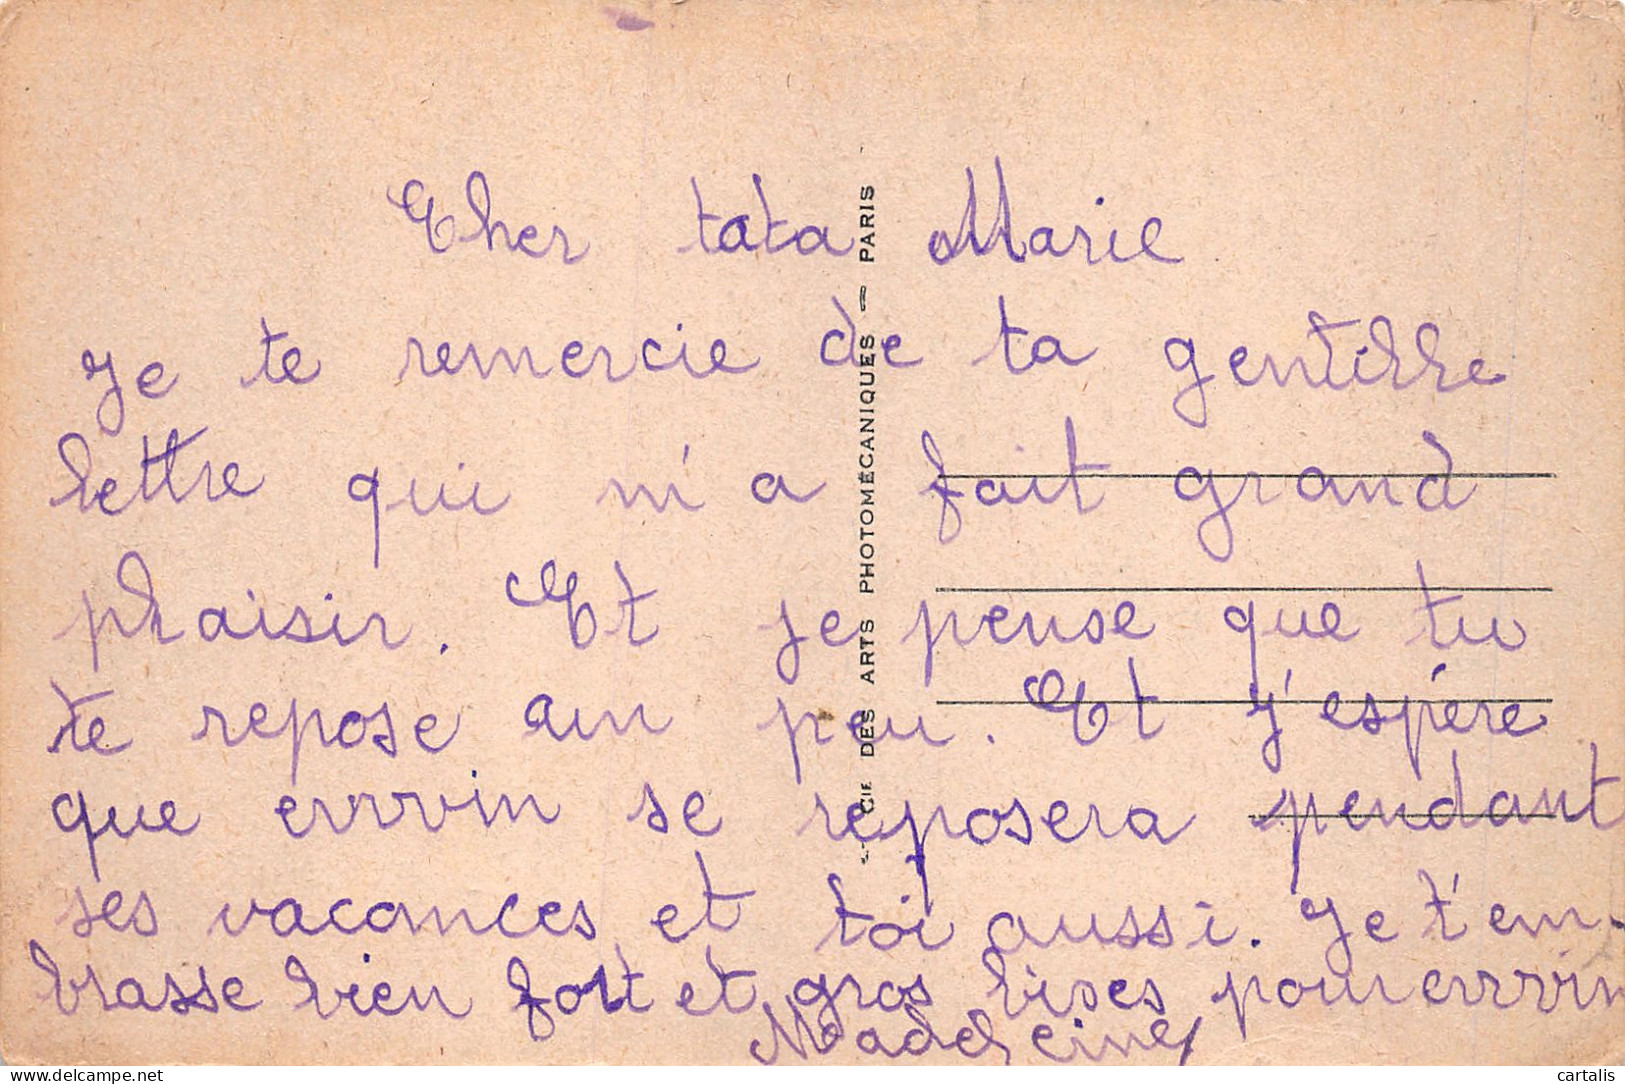 Cher tata Marie
Je te remercie de ta gentille
lettre qui m'a fait grand
plaisir. Et je pense que tu
te repose un peu. Et j'espère
que se reposera pendant
ses vacances et toi aussi. Je t'em-
brasse bien fort et gros bises pour
Madeleine
CIE DES ARTS PHOTOMÉCANIQUES — PARIS
cartalis